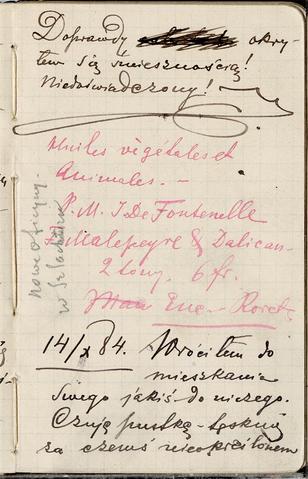 Doprawdy okry-
łem się śmiesznością!
Niedoświadczony!
Huiles végétales et
Animales. -
P. M. J De Fontenelle
F. Malepeyre & Dalican
2 tomy. 6 fr.
Enc - Roret
Nowe oficyny.
w
14/X 84. Wróciłem do
mieszkania
swego jakiś-do niczego.
Czuję pustkę - tęsknię
za czemś nieokreślonem